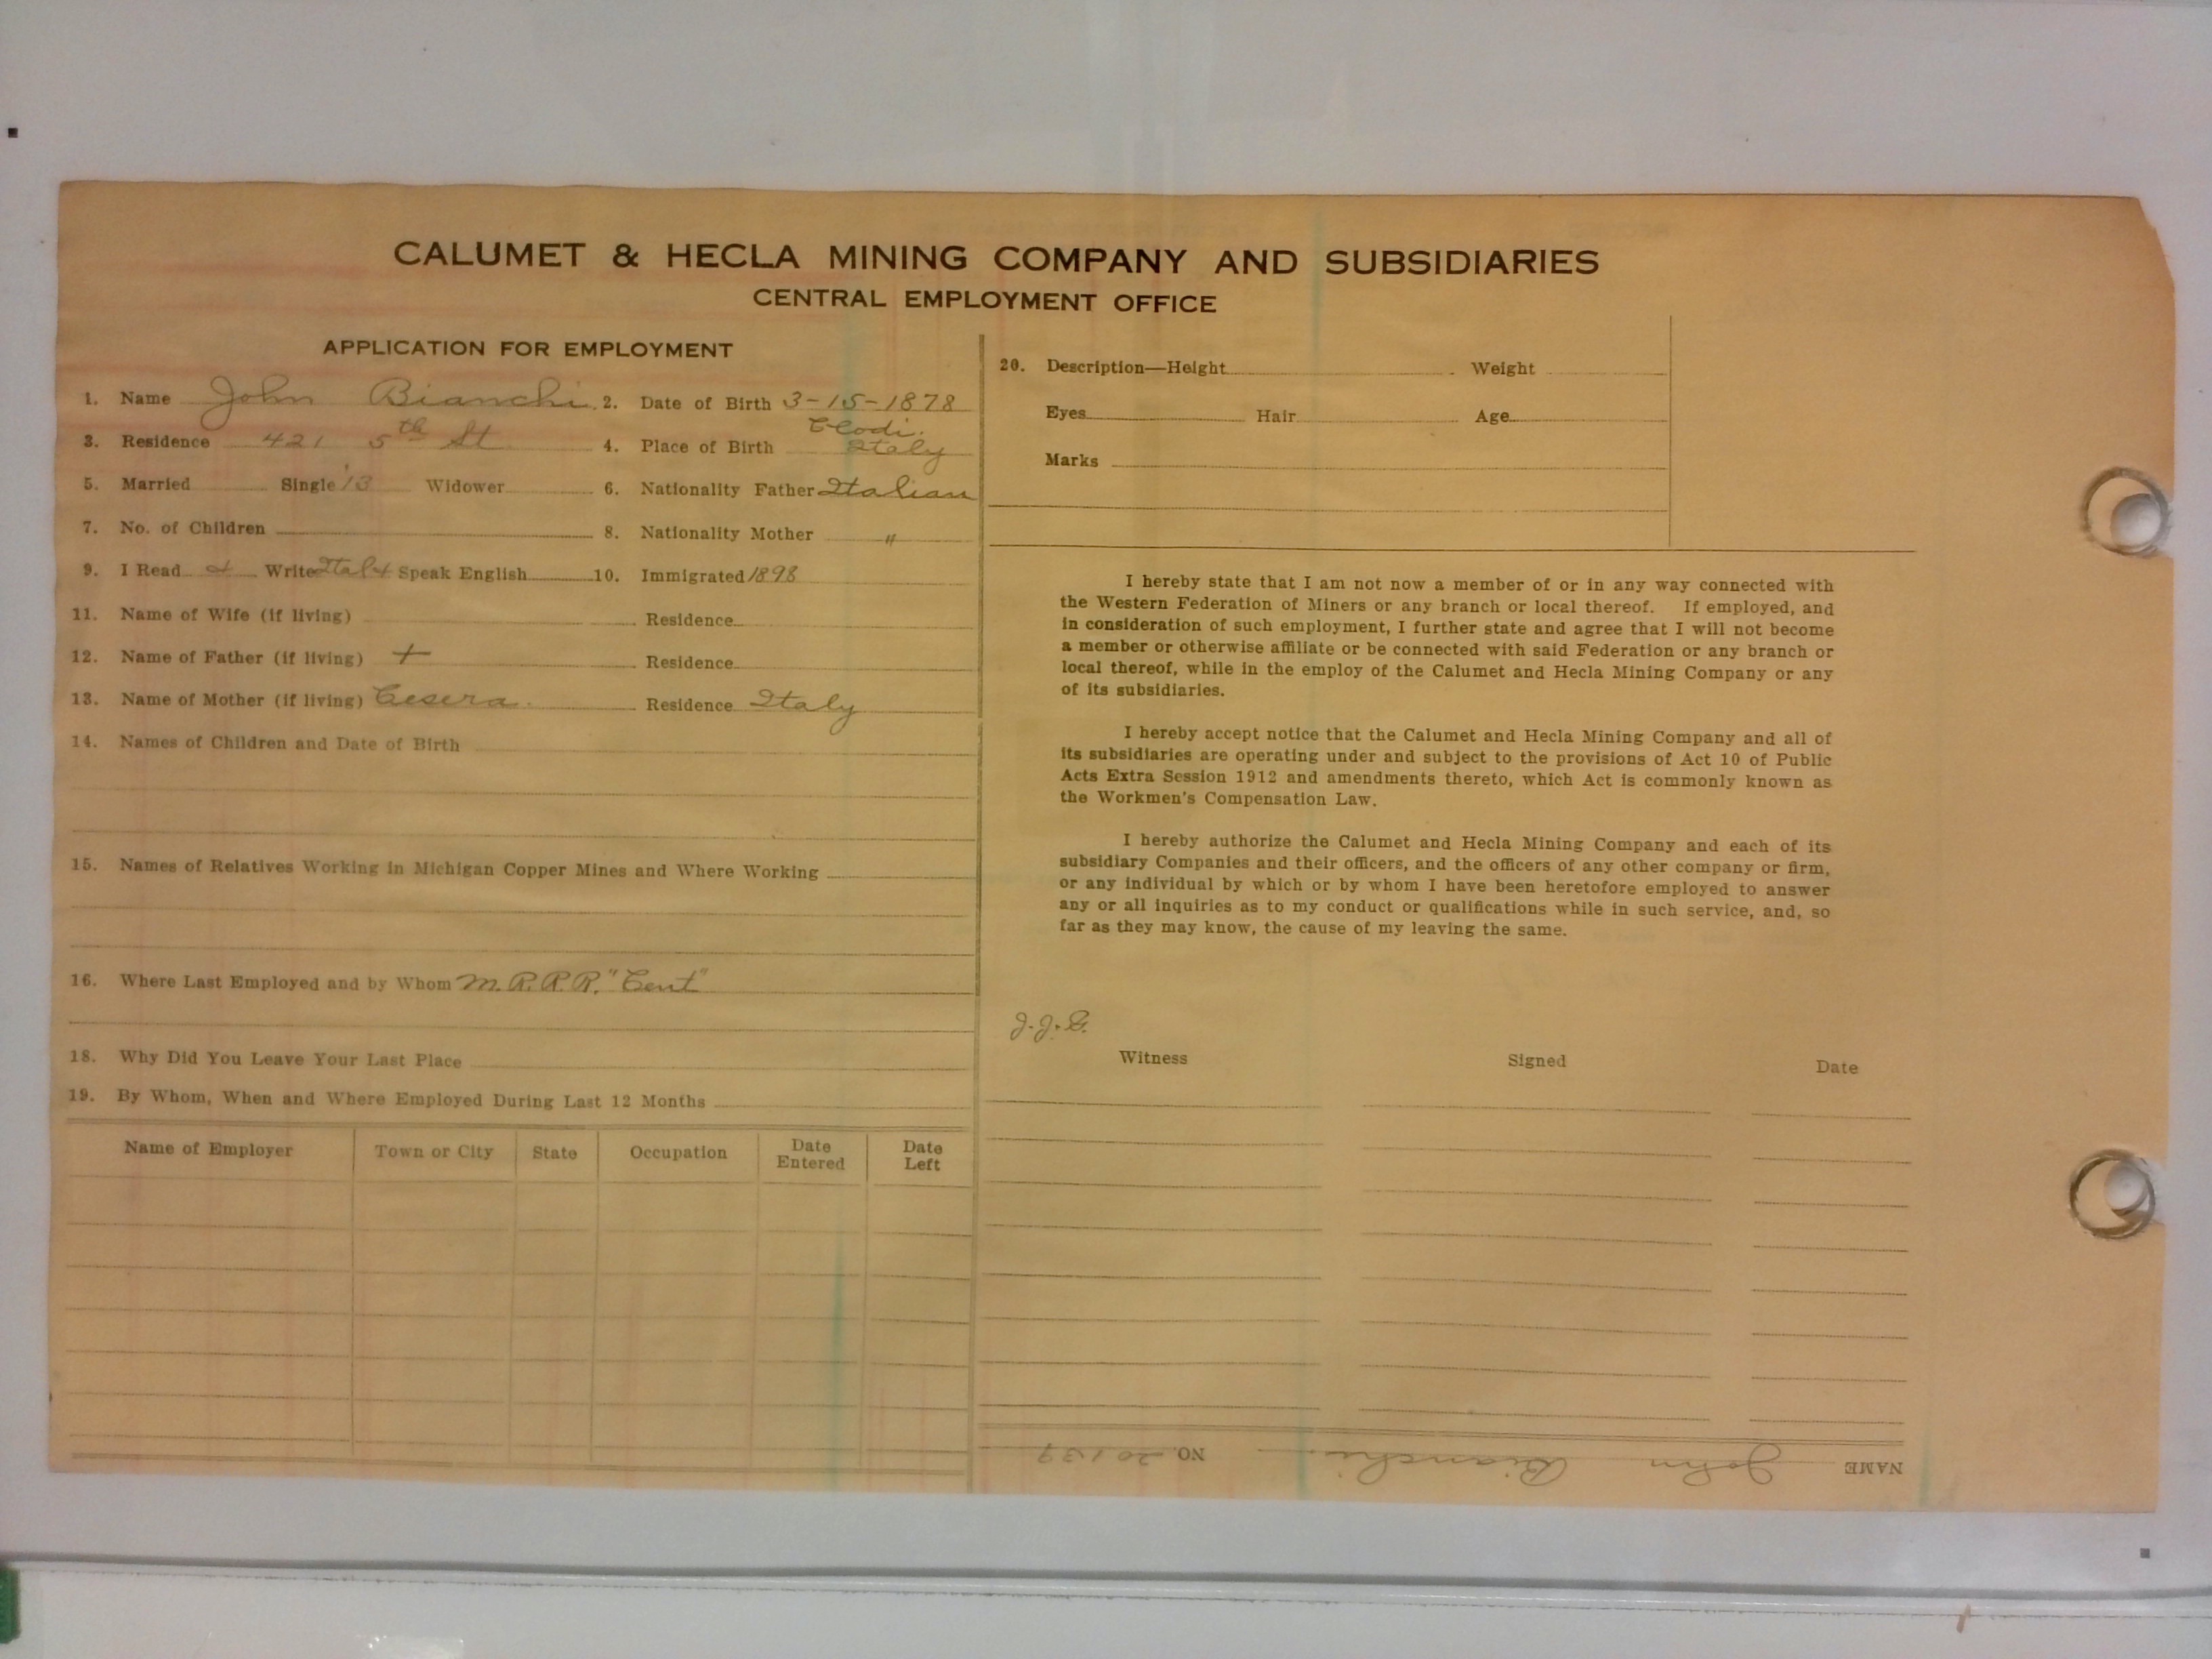 CALUMET & HECLA MINING COMPANY AND SUBSIDIARIES
CENTRAL EMPLOYMENT OFFICE
APPLICATION FOR EMPLOYMENT
1. Name John Bianchi 2. Date of Birth 3-15-1878
3. Residence 421 5th St 4. Place of Birth Italy
5. Married Single Widower 6. Nationality Father Italian
7. No. of Children 8. Nationality Mother "
9. I Read Write Speak English 10. Immigrated 1898
11. Name of Wife (if living) Residence
12. Name of Father (if living) + Residence
13. Name of Mother (if living) Cesera. Residence Italy
14. Names of Children and Date of Birth
15. Names of Relatives Working in Michigan Copper Mines and Where Working
16. Where Last Employed and by Whom M. R.R.R. "Cent"
18. Why Did You Leave Your Last Place
19. By Whom, When and Where Employed During Last 12 Months
Name of Employer Town or City State Occupation Date Entered Date Left
20. Description—Height Weight
Eyes Hair Age
Marks
I hereby state that I am not now a member of or in any way connected with
the Western Federation of Miners or any branch or local thereof. If employed, and
in consideration of such employment, I further state and agree that I will not become
a member or otherwise affiliate or be connected with said Federation or any branch or
local thereof, while in the employ of the Calumet and Hecla Mining Company or any
of its subsidiaries.
I hereby accept notice that the Calumet and Hecla Mining Company and all of
its subsidiaries are operating under and subject to the provisions of Act 10 of Public
Acts Extra Session 1912 and amendments thereto, which Act is commonly known as
the Workmen's Compensation Law.
I hereby authorize the Calumet and Hecla Mining Company and each of its
subsidiary Companies and their officers, and the officers of any other company or firm,
or any individual by which or by whom I have been heretofore employed to answer
any or all inquiries as to my conduct or qualifications while in such service, and, so
far as they may know, the cause of my leaving the same.
J.J.B.
Witness Signed Date
NAME John Bianchi NO. 20139